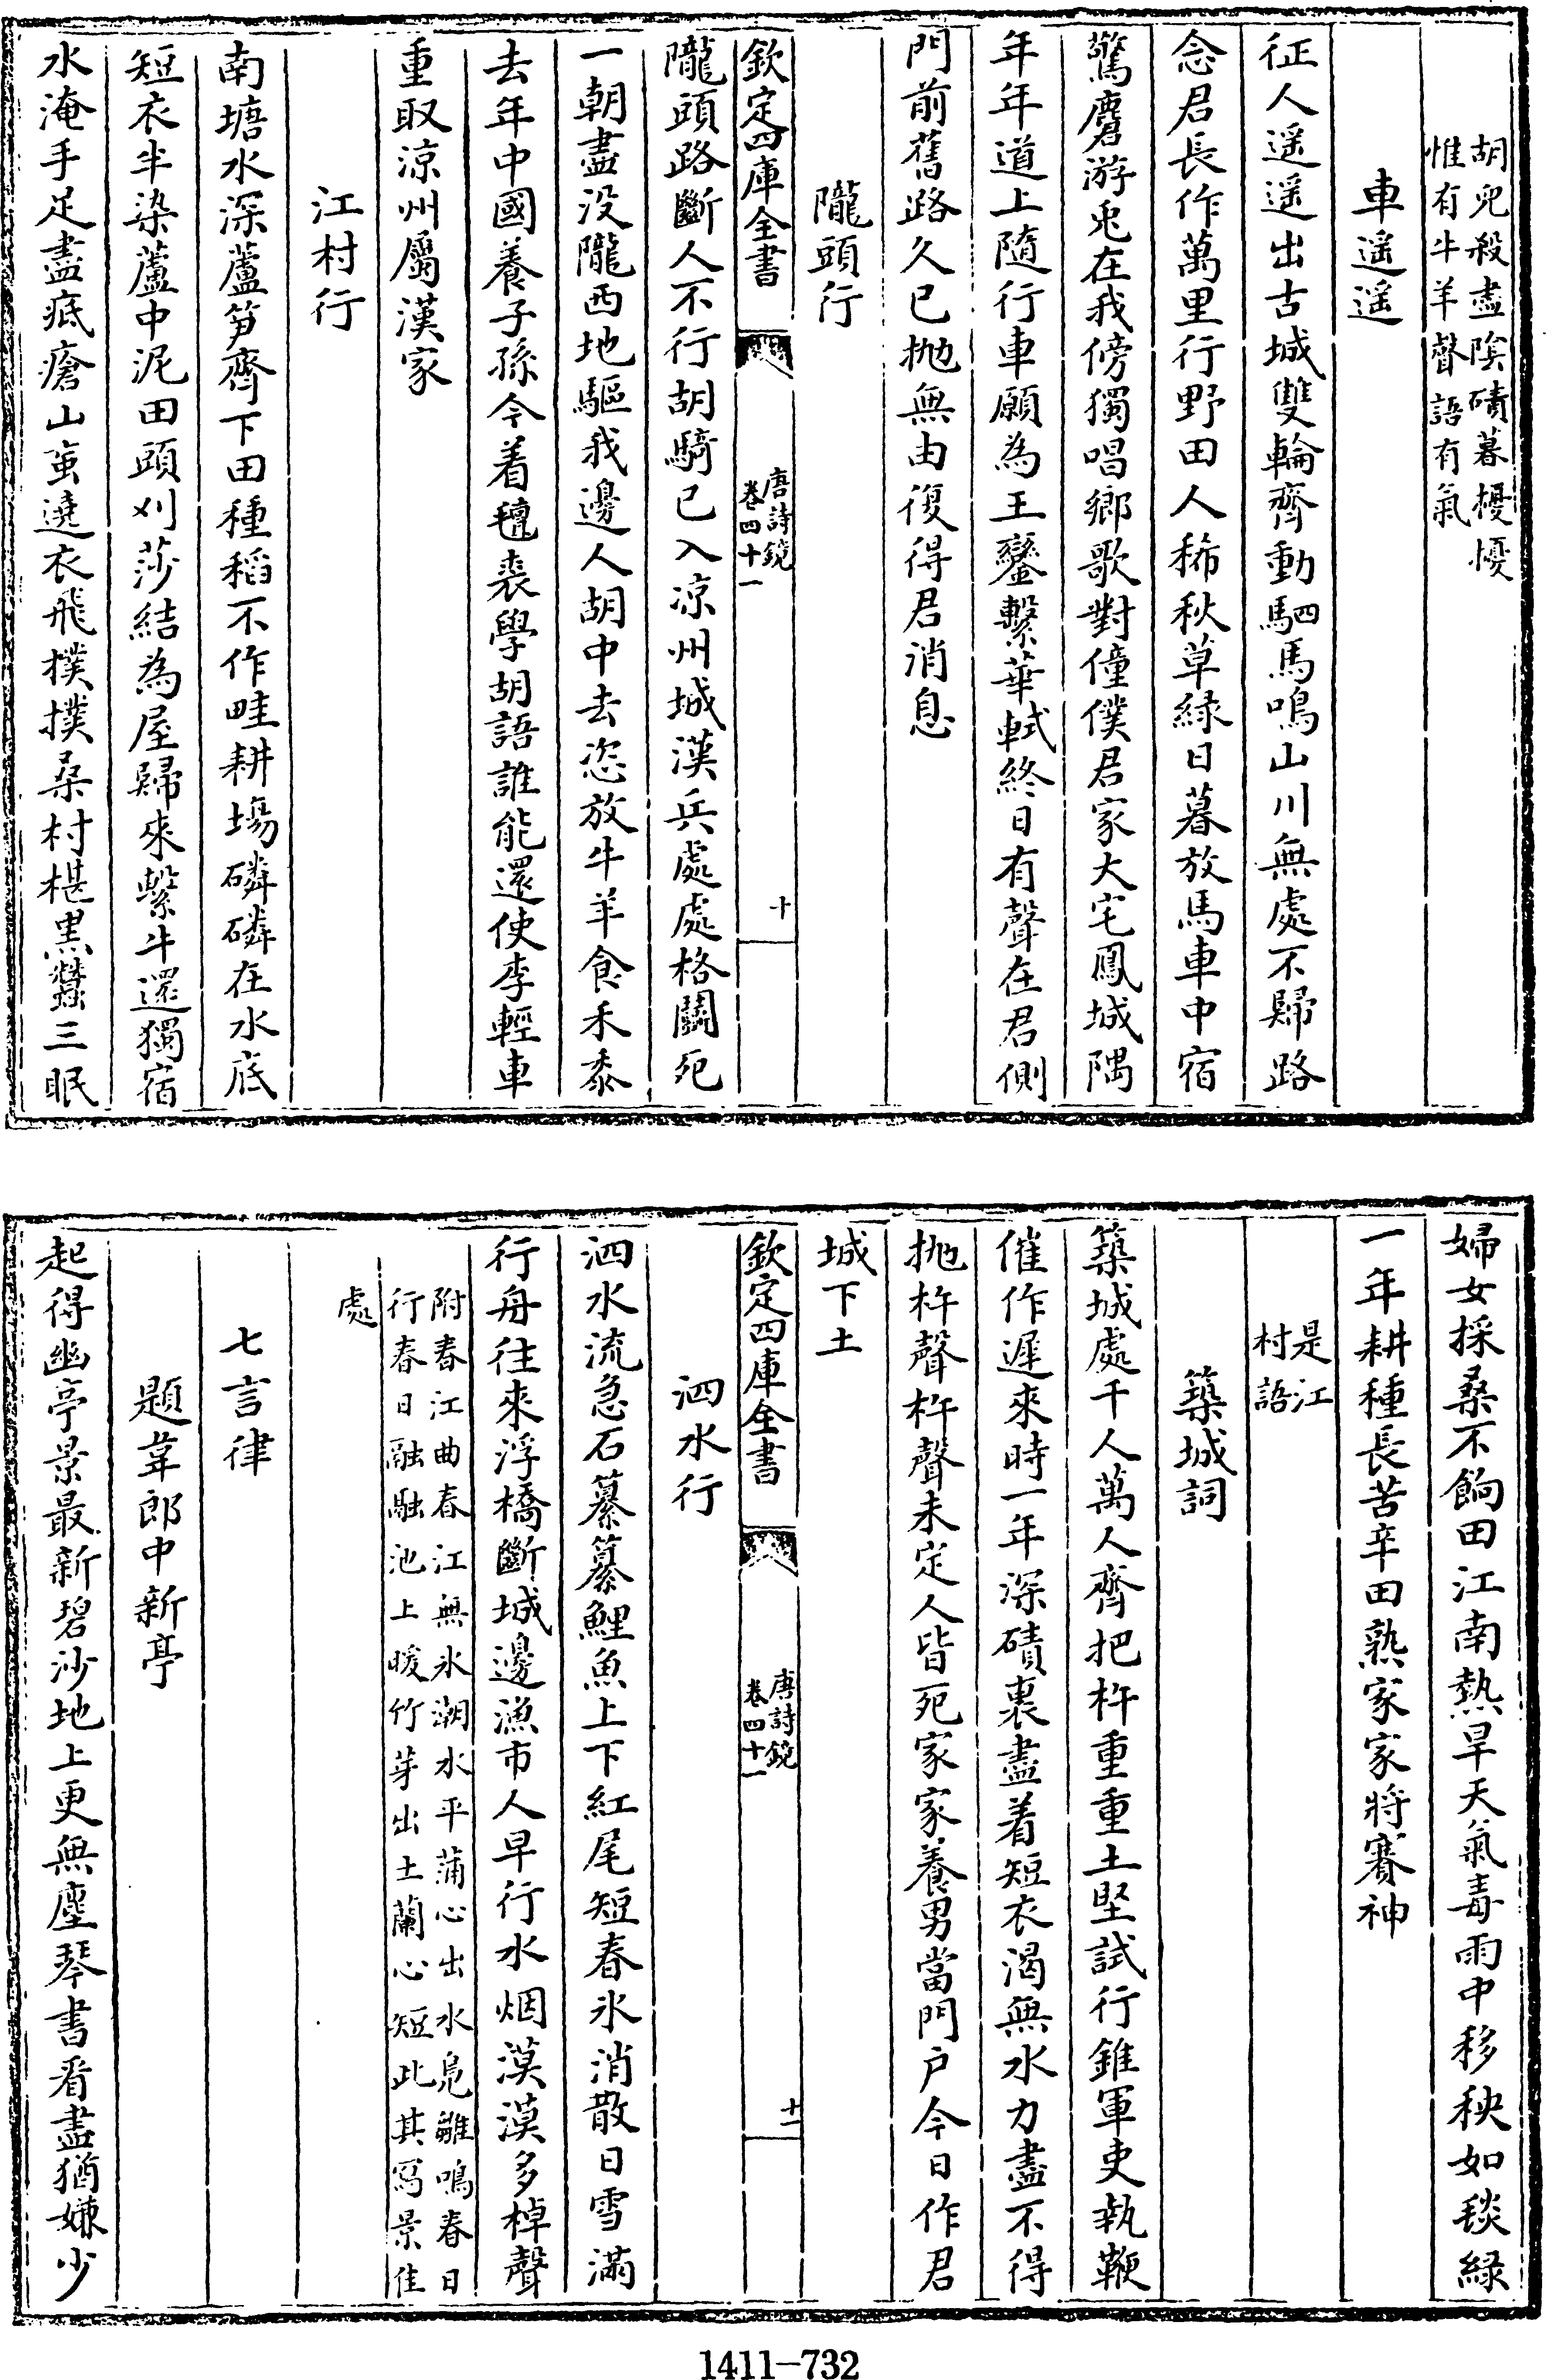 胡兒殺盡陰磧暮擾擾
惟有牛羊聲語有氣
車遥遥
征人遥遥出古城雙輪齊動駟馬鳴山川無處不歸路
念君長作萬里行野田人稀秋草緑日暮放馬車中宿
驚麏游兎在我傍獨唱鄉歌對僮僕君家大宅鳳城隅
年年道上隨行車願為玉鑾繫華軾終日有聲在君側
門前舊路久已抛無由復得君消息
隴頭行
欽定四庫全書
唐詩鏡
卷四十一
十
隴頭路斷人不行胡騎已入凉州城漢兵處處格鬬死
一朝盡没隴西地驅我邊人胡中去恣放牛羊食禾黍
去年中國養子孫今着氊裘學胡語誰能還使李輕車
重取凉州屬漢家
江村行
南塘水深蘆笋齊下田種稻不作畦耕塲磷磷在水底
短衣半染蘆中泥田頭刈莎結為屋歸來繫牛還獨宿
水淹手足盡疧瘡山䖟遶衣飛撲撲桑村椹黒蠶三眠
婦女採桑不餉田江南熱旱天氣毒雨中移秧如毯緑
一年耕種長苦辛田熟家家將賽神
是江
村語
築城詞
築城處千人萬人齊把杵重重土堅試行錐軍吏執鞭
催作遲來時一年深磧裏盡着短衣渴無水力盡不得
抛杵聲杵聲未定人皆死家家養男當門户今日作君
城下土
欽定四庫全書
唐詩鏡
卷四十一
十一
泗水行
泗水流急石纂纂鯉魚上下紅尾短春氷消散日雪滿
行舟往來浮橋斷城邊漁市人早行水烟漠漠多棹聲
附春江曲春江無氷潮水平蒲心出水鳬雛鳴春日
行春日融融池上暖竹芽出土蘭心短此其寫景佳
處
七言律
題韋郎中新亭
起得幽亭景最新碧沙地上更無塵琴書看盡猶嫌少
1411-732